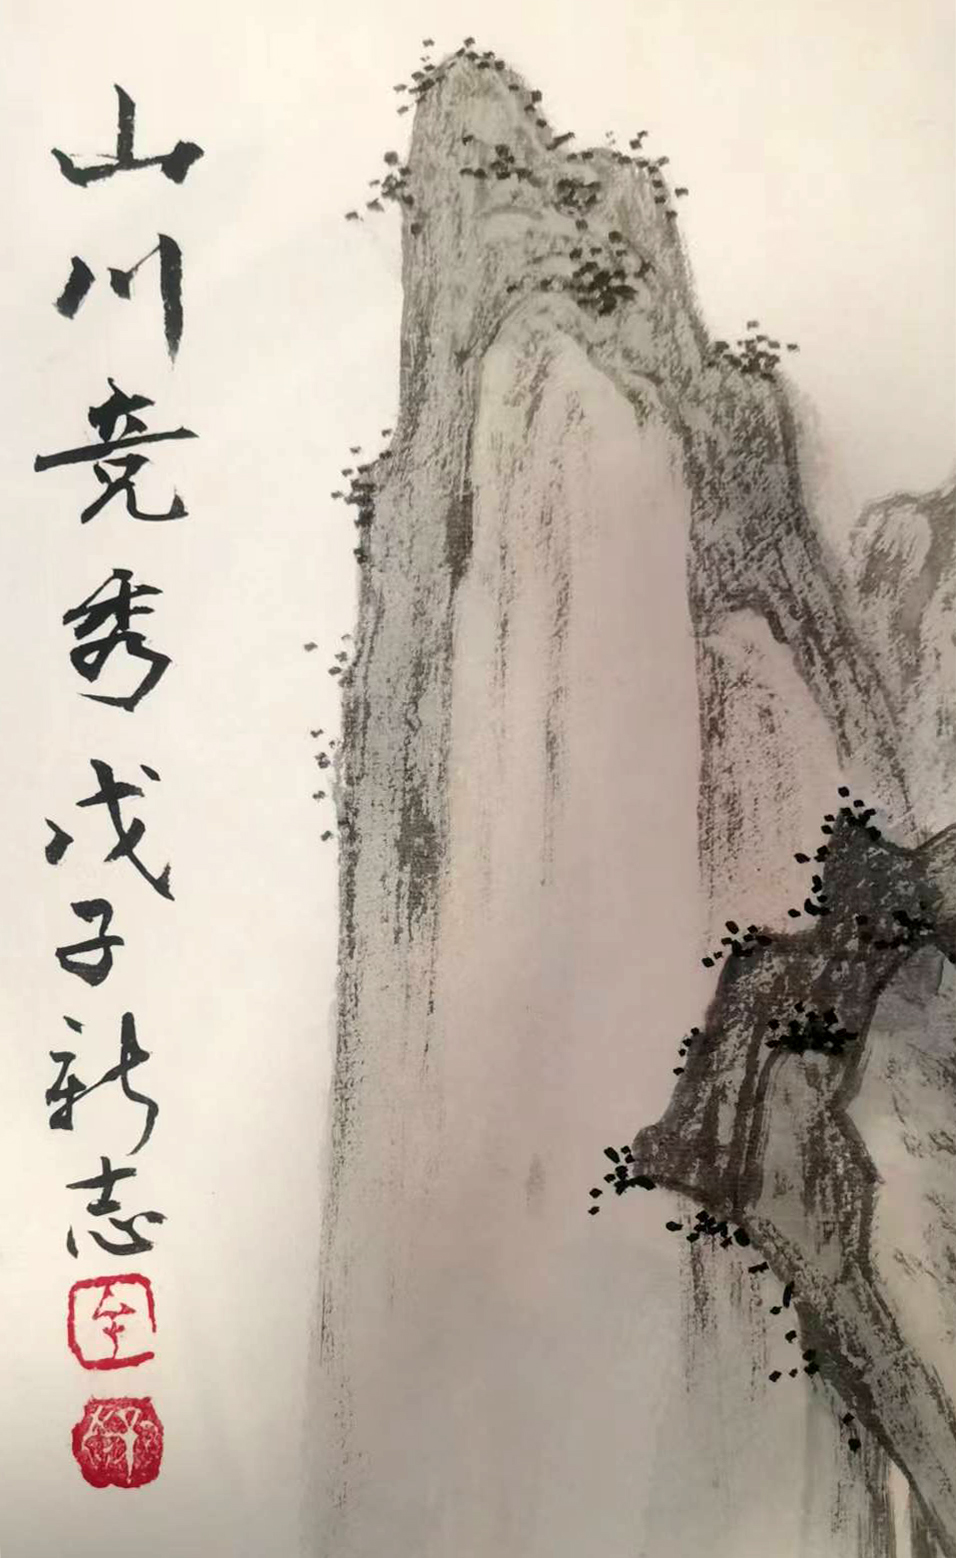 山川竞秀戊子新志